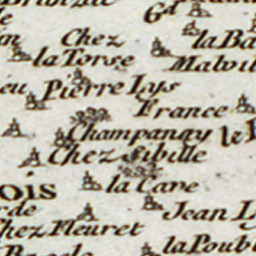 Gd
Chez
la Ba
la Torse
Malvil
Pierre Lys
France
Champanay le
Chez Sibille
OIS
la Cave
de
Jean L
hez Fleuret
la Poub